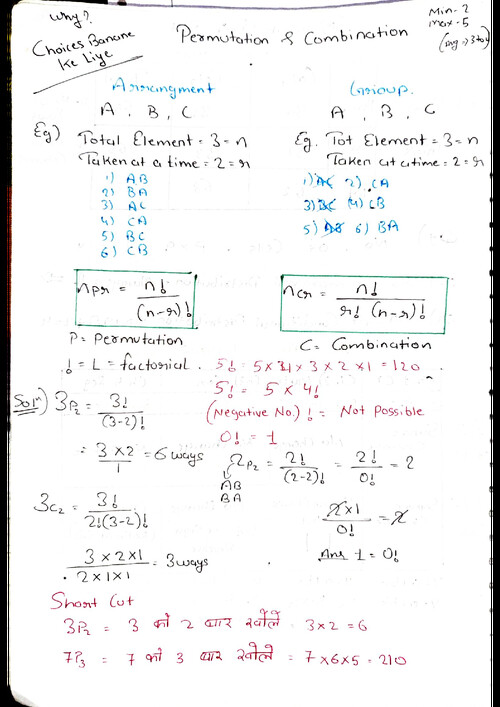 Why?
Choices Banane
Ke Liye
Permutation & Combination
Min - 2
Max - 5
Arrangment
A , B , C
Eg) Total Element = 3 = n
Taken at a time = 2 = r
1) AB
2) BA
3) AC
4) CA
5) BC
6) CB
Group
A , B , C
Eg. Tot Element = 3 = n
Taken at a time = 2 = r
1) AC 2) CA
3) BC 4) CB
5) AB 6) BA
nPr = n! / (n-r)!
P = Permutation
nCr = n! / r! (n-r)!
C = Combination
! = L = factorial . 5! = 5 × 4 × 3 × 2 × 1 = 120
5! = 5 × 4!
(Negative No.) ! = Not Possible
0! = 1
Solⁿ) 3P2 = 3! / (3-2)!
= 3 × 2 / 1 = 6 ways
2P2 = 2! / (2-2)! = 2! / 0! = 2
AB
BA
2 × 1 / 0! = 2
Ans 1 = 0!
3C2 = 3! / 2!(3-2)!
3 × 2 × 1 / 2 × 1 × 1 = 3 ways
Short Cut
3P2 = 3 को 2 बार खोले 3 × 2 = 6
7P3 = 7 को 3 बार खोले = 7 × 6 × 5 = 210